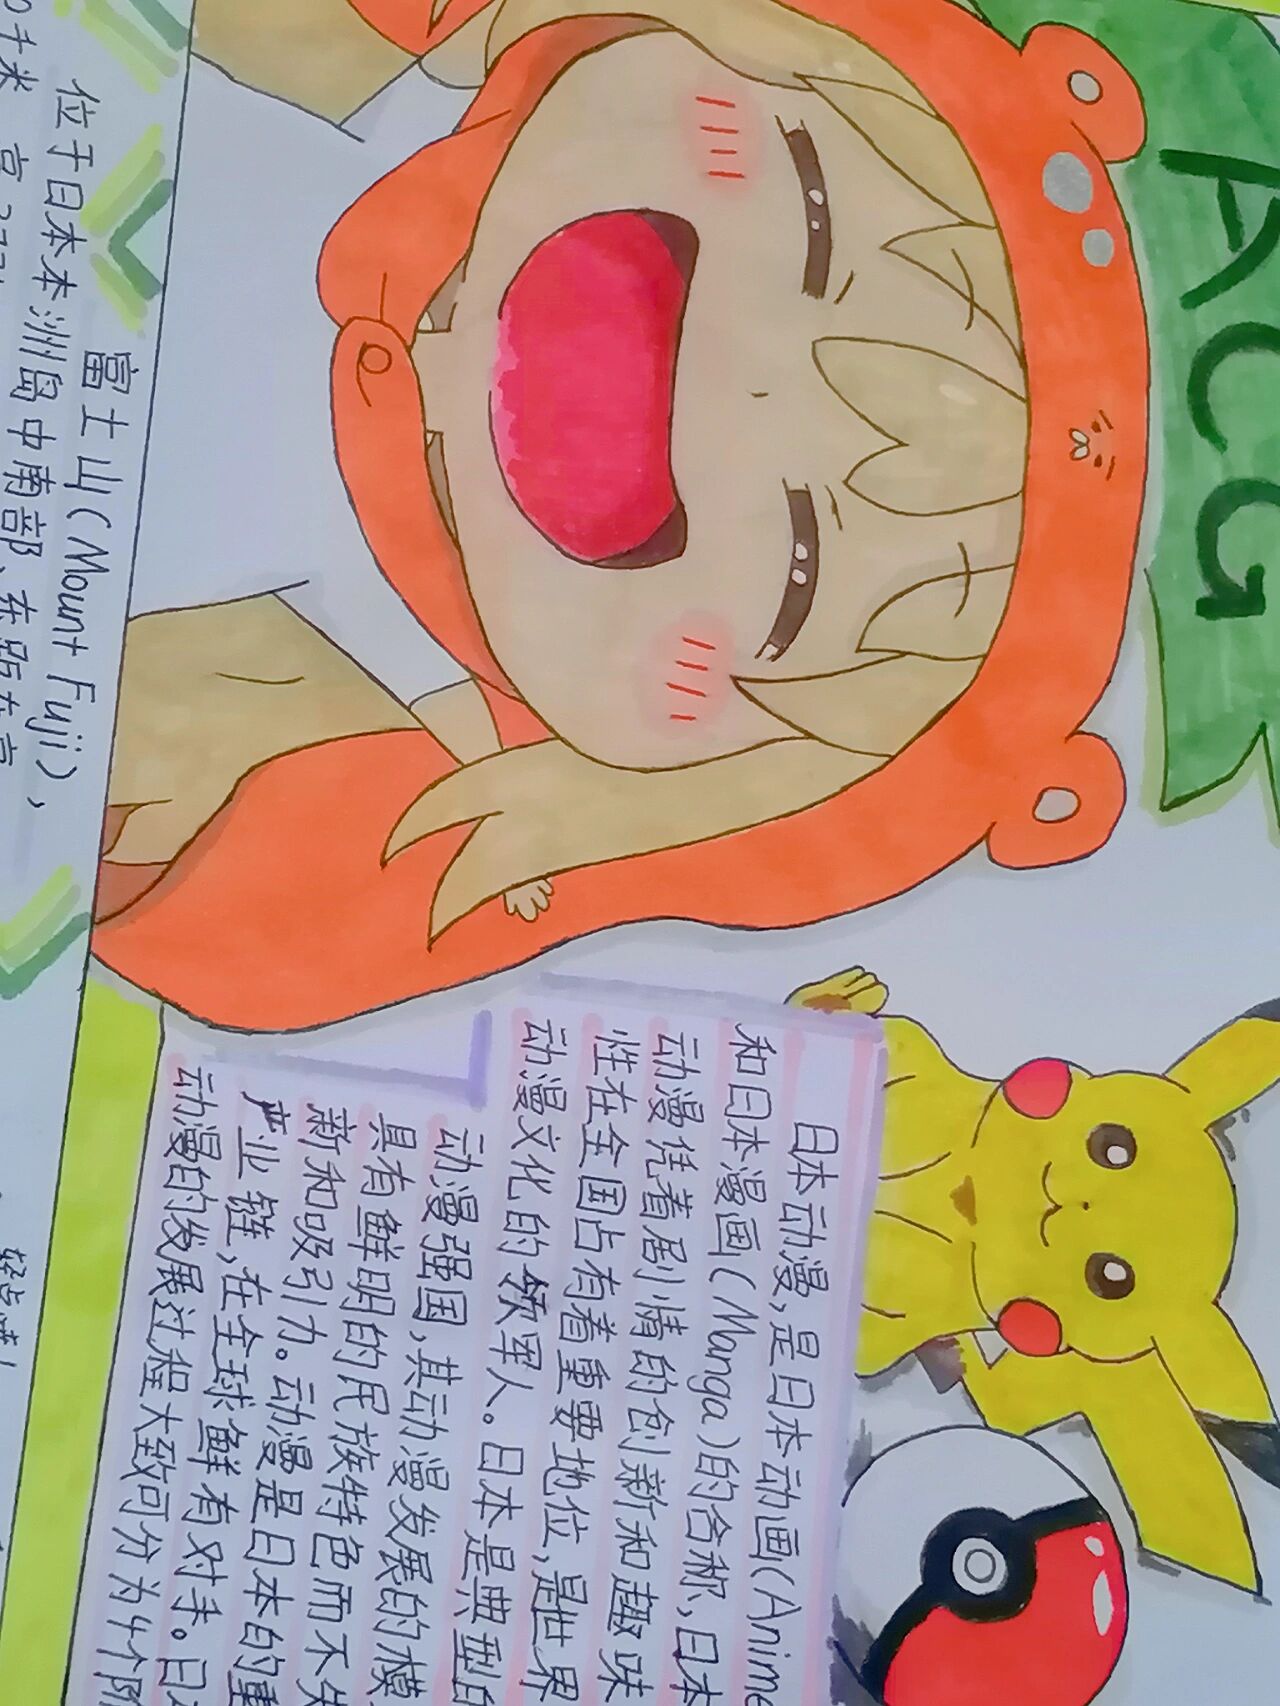 ACG
日本动漫,是日本动画(Anime
和日本漫画(Manga)的合称,日本
动漫凭着剧情的创新和趣味
性在全国占有着重要地位,是世界
动漫文化的领军人。日本是典型的
动漫强国,其动漫发展的模
具有鲜明的民族特色而不失
新和吸引力。动漫是日本的重
产业链,在全球鲜有对手。日本
动漫的发展过程大致可分为4个阶
富士山(Mount Fuji),
位于日本本洲岛中南部,东距东京